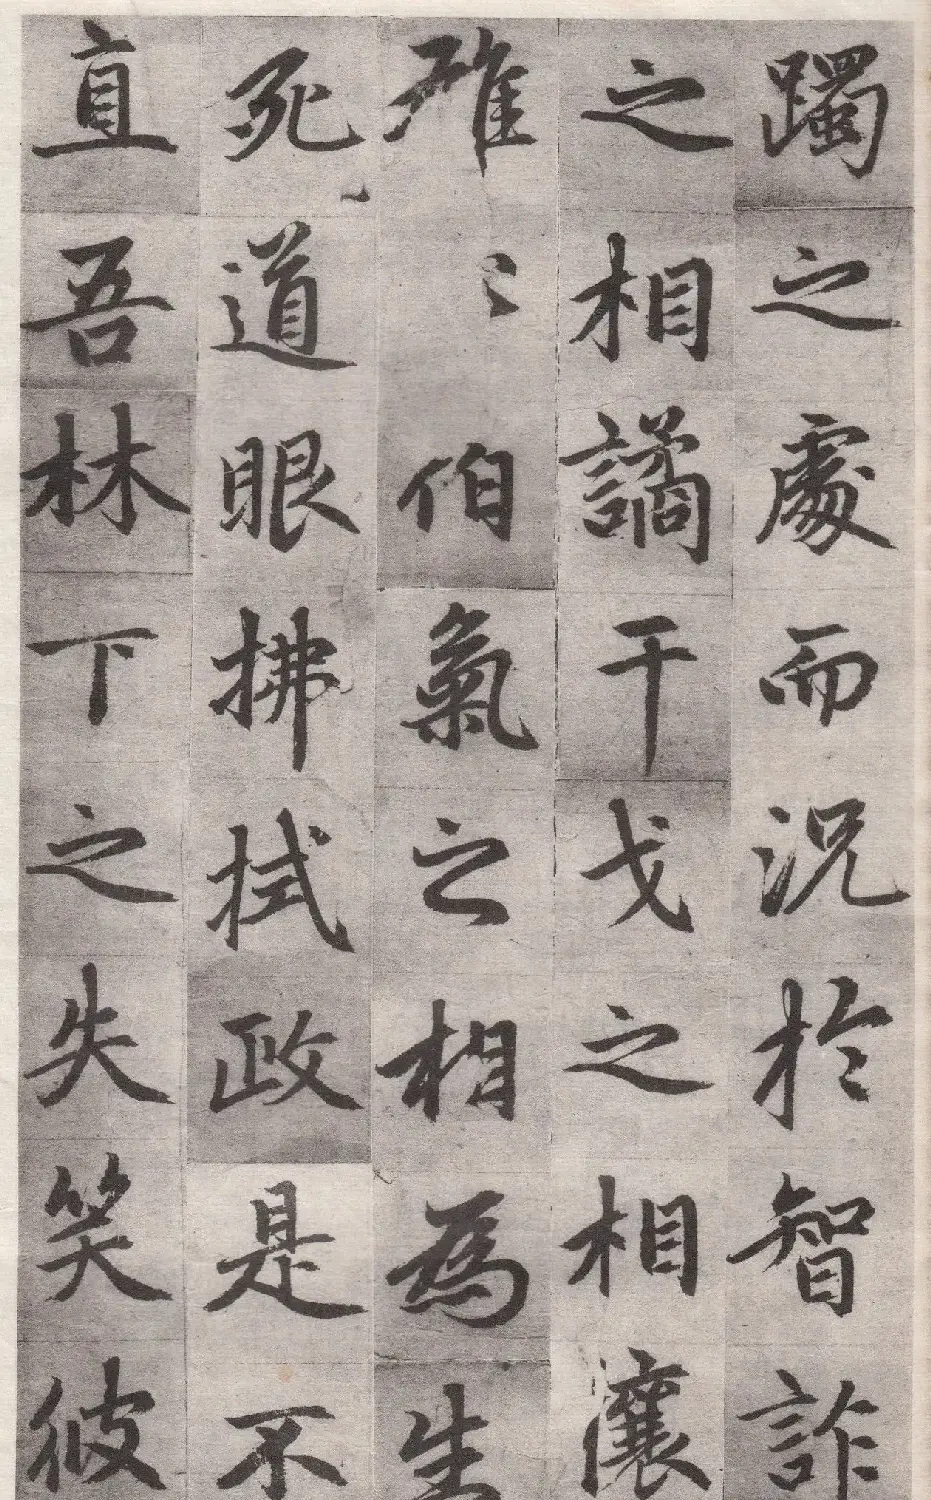 躅之處而況於智詐
之相譎干戈之相
雄〻伯氣之相為生
死道眼拂拭政是不
直吾林下之失笑彼